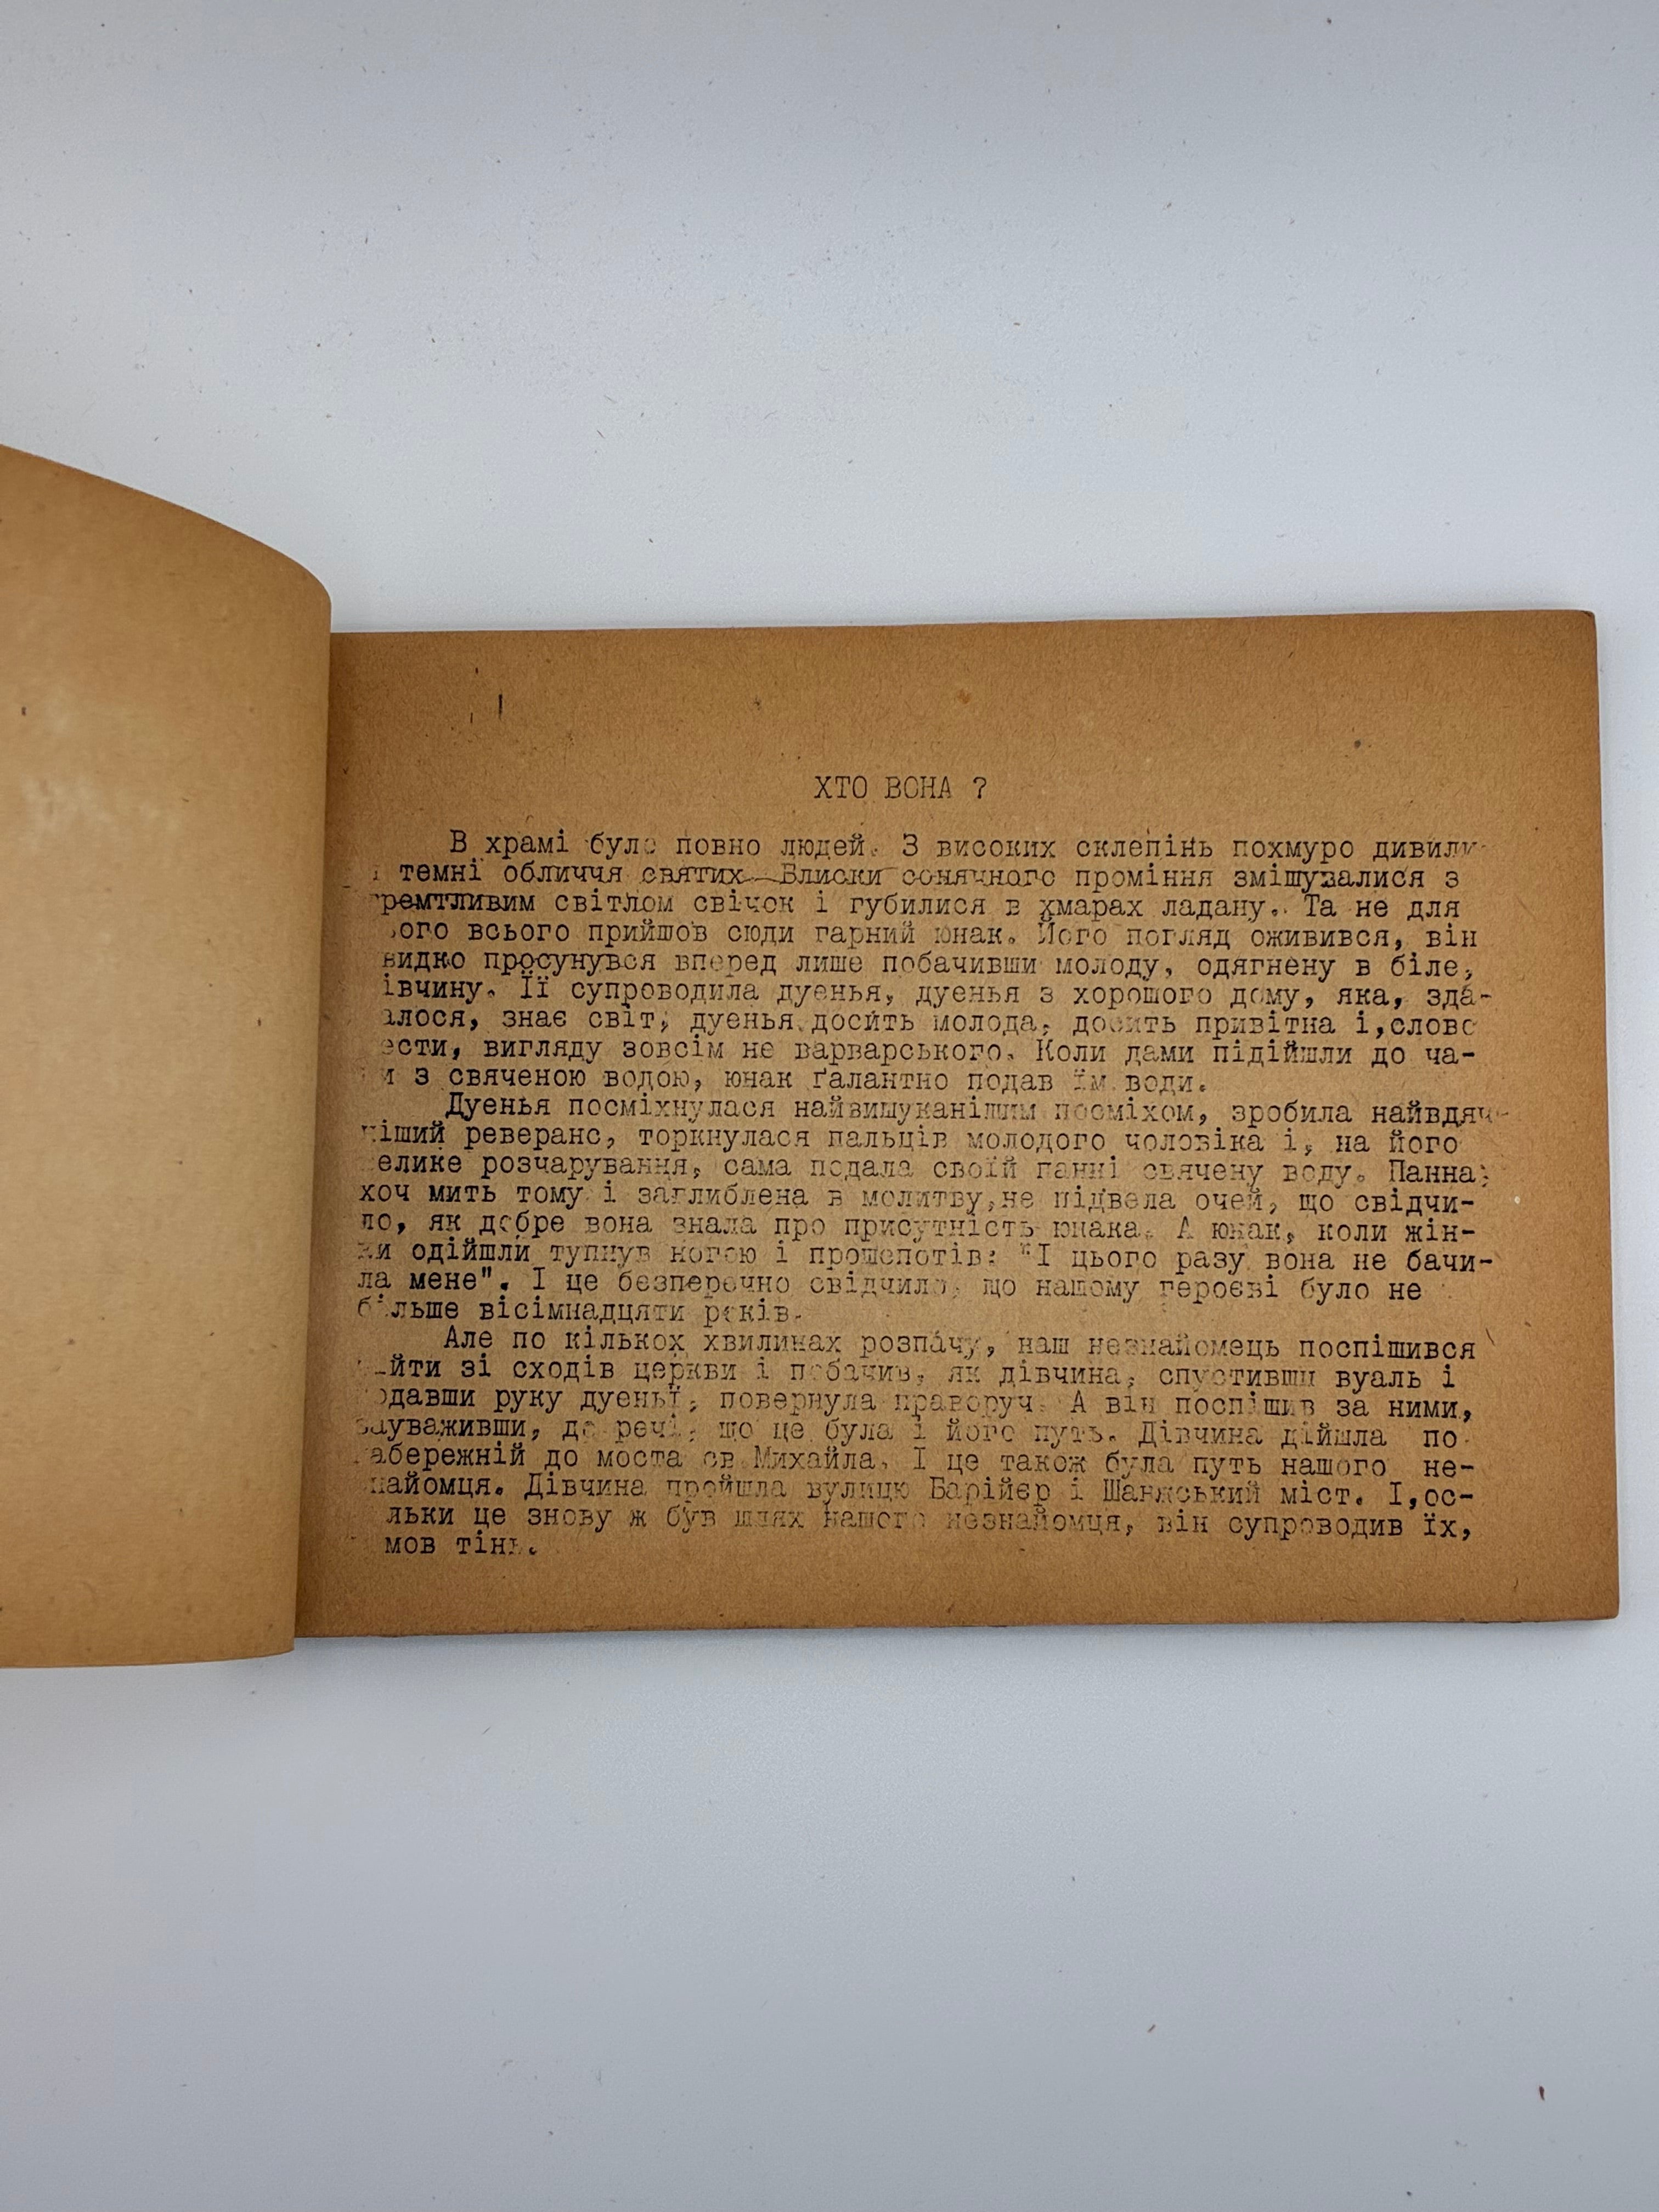 ХТО ВОНА ?
В храмі було повно людей. З високих склепінь похмуро дивили-
темні обличчя святих. Блиски сонячного проміння змішувалися з
тремтливим світлом свічок і губилися в хмарах ладану. Та не для
ього всього прийшов сюди гарний юнак. Його погляд оживився, він
видко просунувся вперед лише побачивши молоду, одягнену в біле,
івчину. Її супроводила дуенья, дуенья з хорошого дому, яка, зда-
алося, знає світ, дуенья досить молода, досить привітна і,слово
ести, вигляду зовсім не варварського. Коли дами підійшли до ча-
и з свяченою водою, юнак ґалантно подав їм води.
Дуенья посміхнулася найвишуканішим посміхом, зробила найвдяч-
ніший реверанс, торкнулася пальців молодого чоловіка і, на його
велике розчарування, сама подала своїй панні свячену воду. Панна,
хоч мить тому і заглиблена в молитву,не підвела очей, що свідчи-
ло, як добре вона знала про присутність юнака. А юнак, коли жін-
ки одійшли тупнув ногою і прошепотів: "І цього разу вона не бачи-
ла мене". І це безперечно свідчило, що нашому героєві було не
більше вісімнадцяти років.
Але по кількох хвилинах розпачу, наш незнайомець поспішився
ййти зі сходів церкви і побачив, як дівчина, спустивши вуаль і
одавши руку дуеньї, повернула праворуч. А він поспішив за ними,
зауваживши, до речі, що це була і його путь. Дівчина дійшла по
набережній до моста св.Михайла. І це також була путь нашого не-
найомця. Дівчина пройшла вулицю Барійєр і Шанжський міст. І,ос-
льки це знову ж був шлях нашого незнайомця, він супроводив їх,
мов тінь.